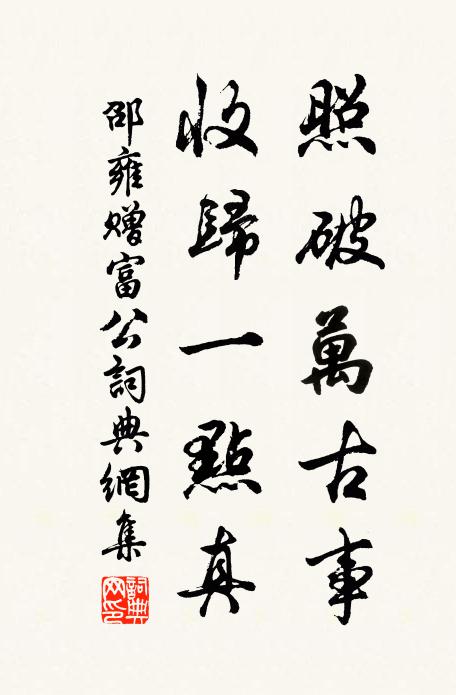 照破萬古事
收歸一點真
邵雍贈富公詞典網集
詞典網印